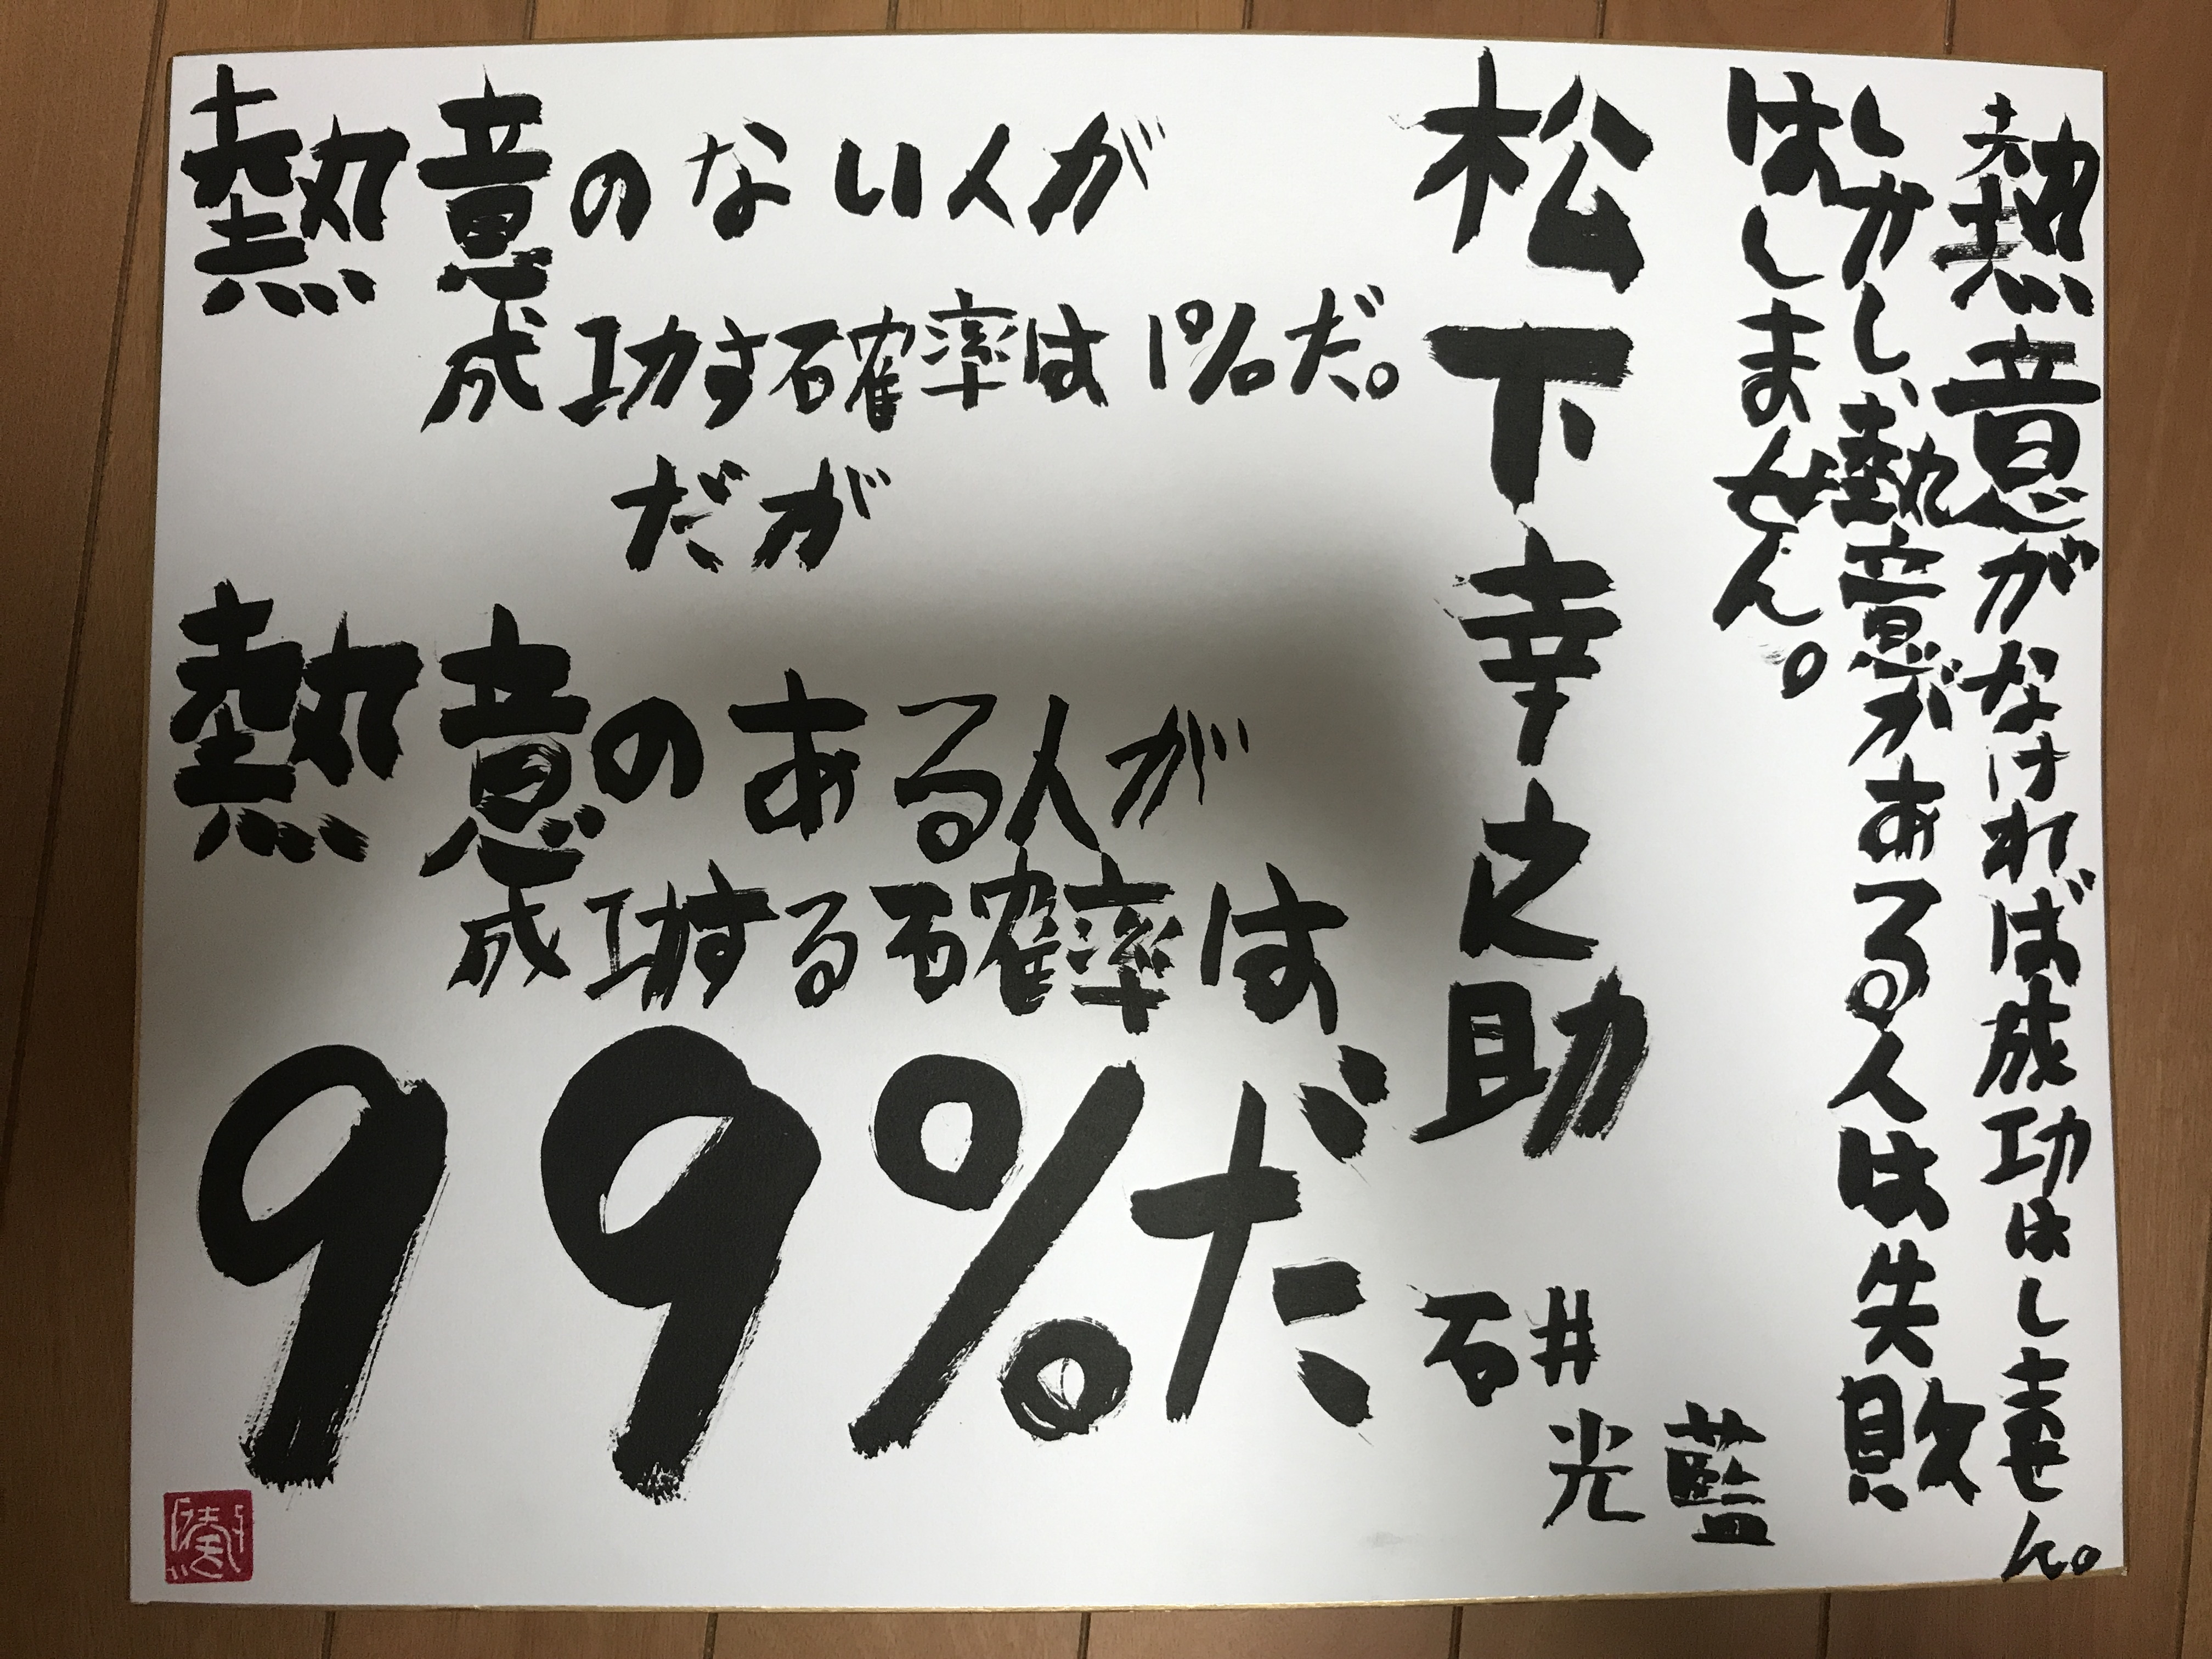 熱意がなければ成功はしません。
しかし、熱意がある人は失敗
はしません。
松下幸之助
石井
光
藍
熱意のない人が
成功する確率は1%だ。
だが
熱意のある人が
成功する確率は
99%だ